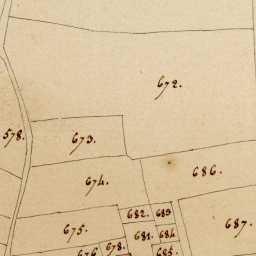 672.
578.
673.
686.
674.
682. 683
687.
675.
681. 684
678.
676
685.